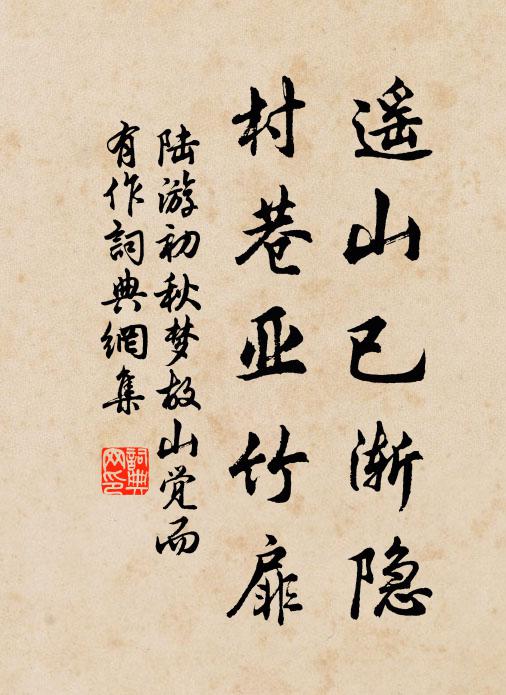 遥山已渐隐
村巷亚竹扉
陆游初秋梦故山觉而
有作詞典網集
詞典
网印